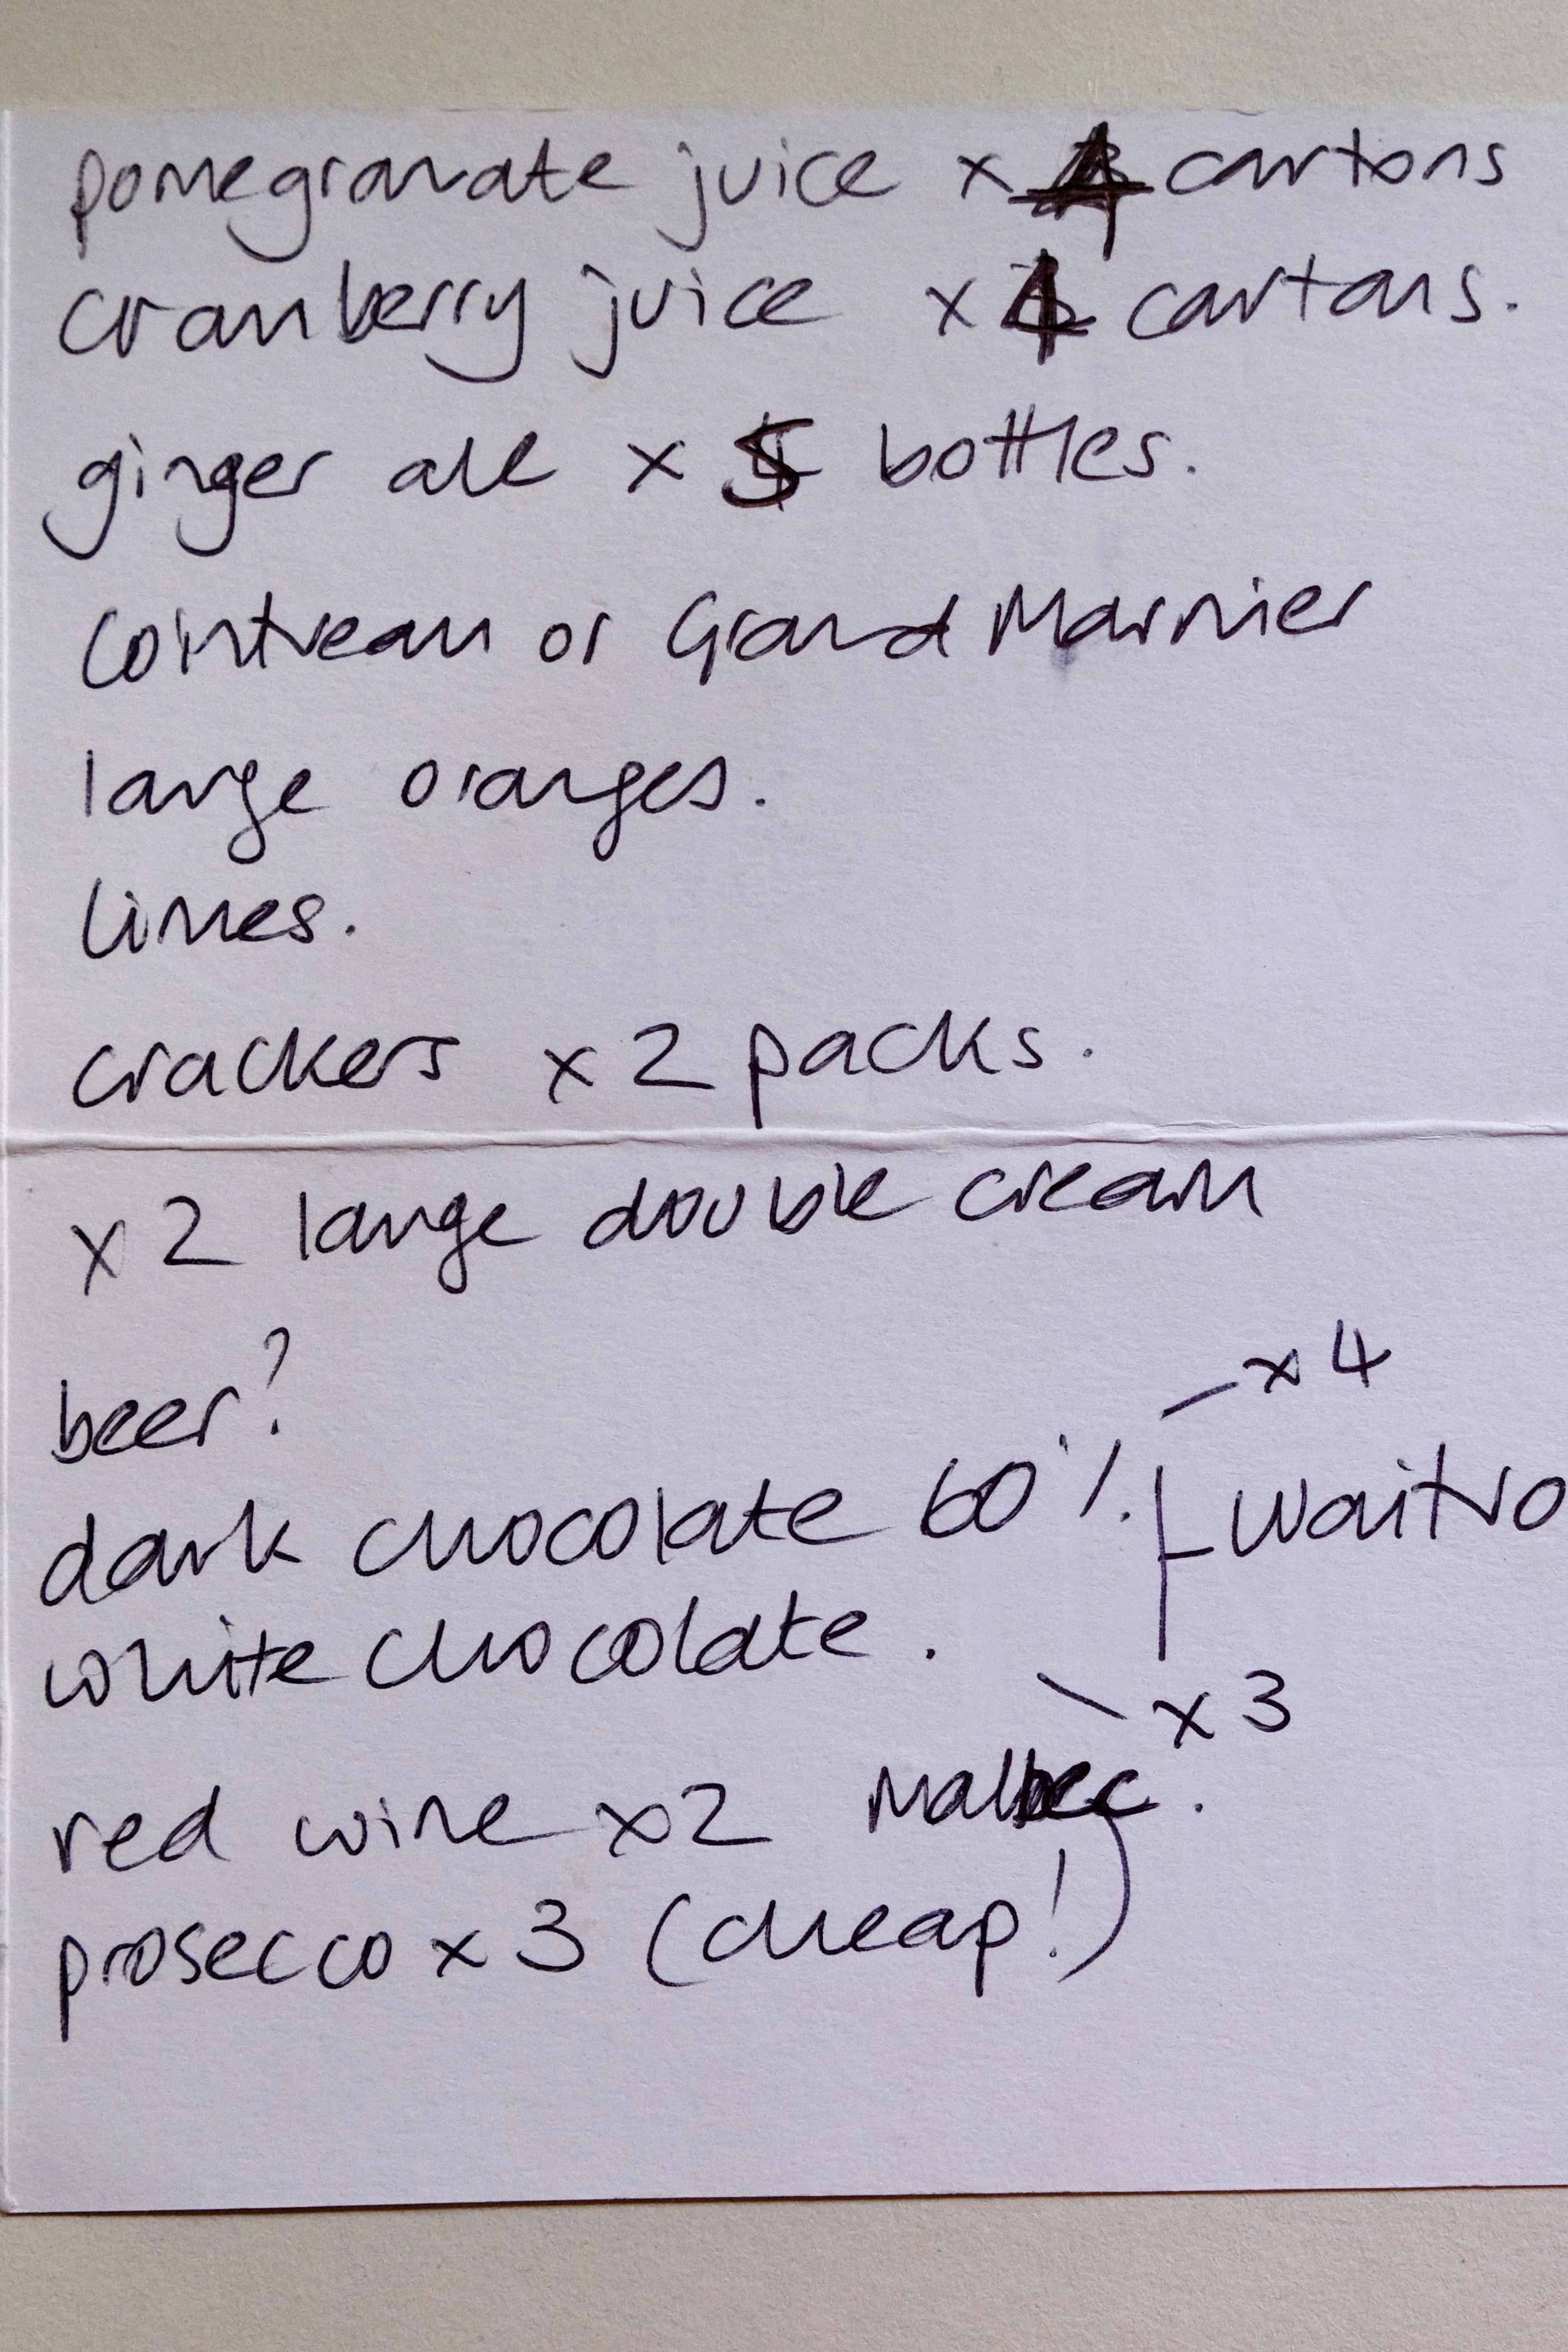 pomegranate juice x 4 cartons
cranberry juice x 4 cartons.
ginger ale x 5 bottles.
Cointreau or Grand Marnier
large oranges.
limes.
crackers x 2 packs.
x 2 large double cream
beer?
x 4
dark chocolate 60%. waitro
white chocolate.
x 3
red wine x 2 Malbec.
prosecco x 3 (cheap!)